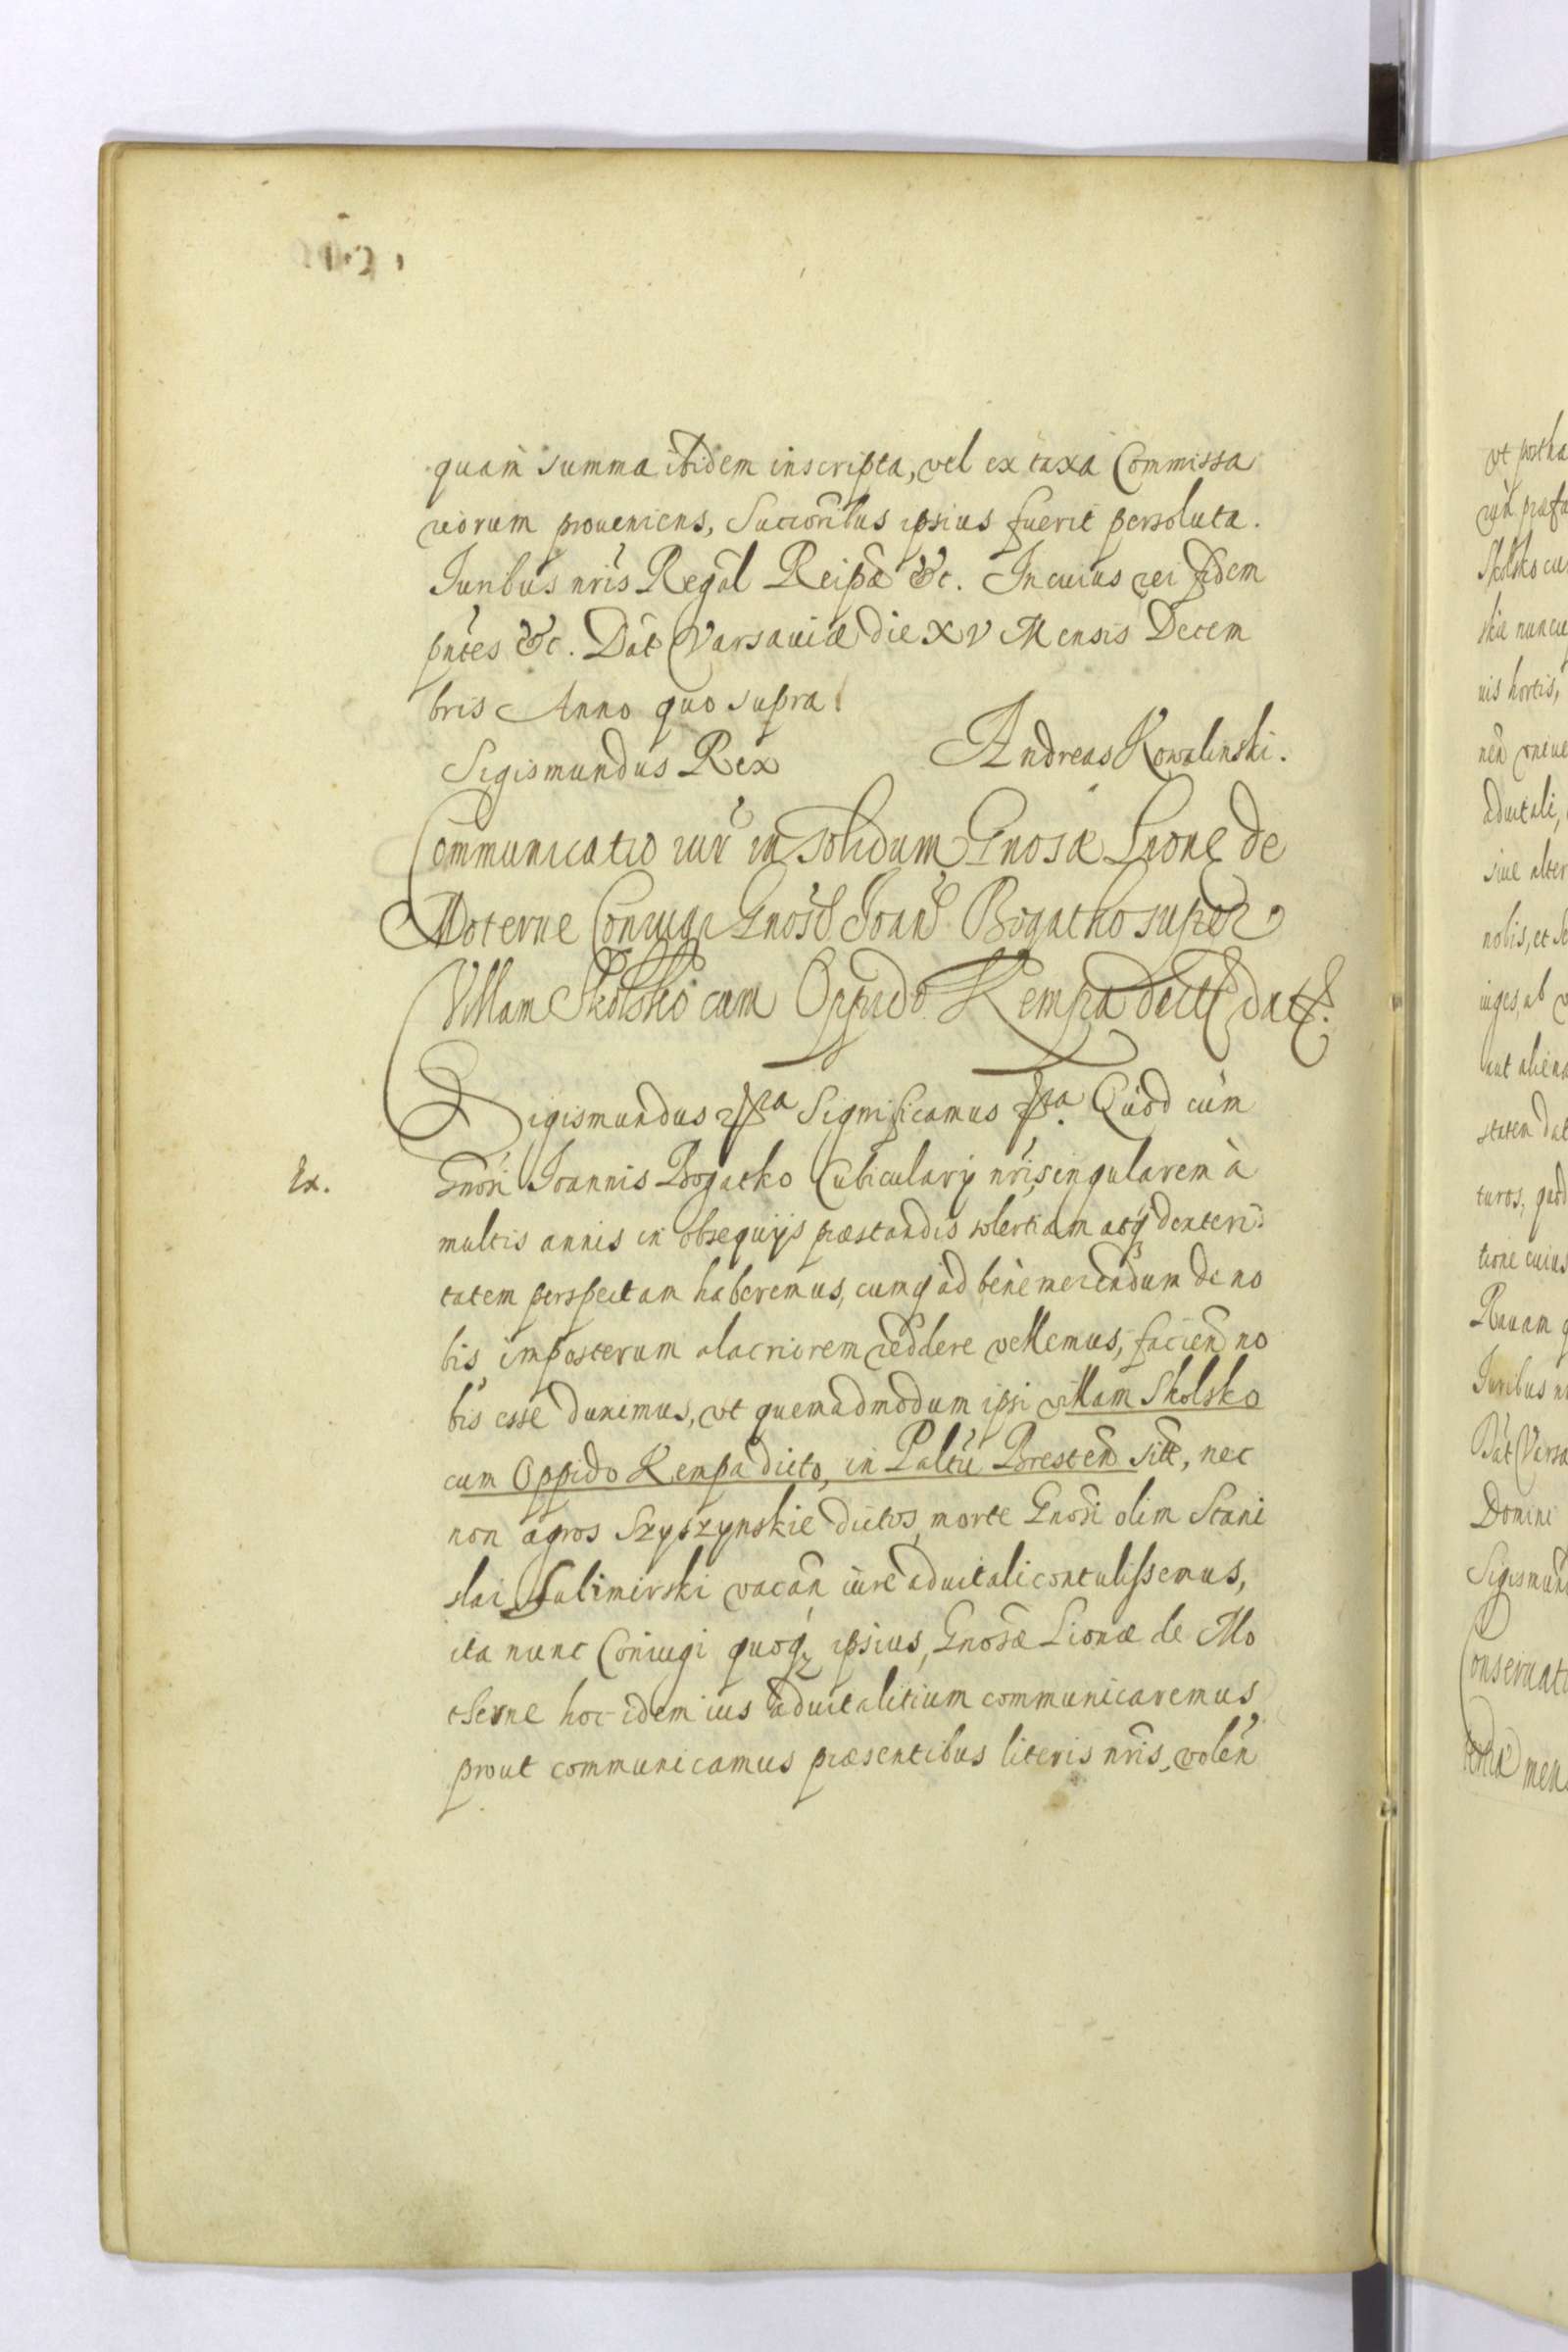 quam summa ibidem inscripta, vel ex taxa Commissa
riorum proueniens, Succoribus ipsius fuerit persoluta.
Juribus nris Regal Reipae &c. In cuius rei fidem
pntes &c. Dat Varsauiae die XV Mensis Decem
bris Anno quo supra.
Sigismundus Rex Andreas Kowalinski.
Communicatio iur in solidum Gnosae Lione de
Moterne Coniugi Gnosi Joan Bogatko super
Villam Skolsko cum Oppido Kempa dict dat.
Sigismundus &ra Significamus &ra. Quod cum
Ex.
Gnosi Joannis Bogatko Cubicularij nri, singularem à
multis annis in obsequijs praestandis solertiam atq dexteri
tatem perspectam haberemus, cumq ad bene merendum de no
bis imposterum alacriorem reddere vellemus, faciend no
bis esse duximus, vt quemadmodum ipsi villam Skolsko
cum Oppido Kempa dicto, in Paltu Bresten sitt, nec
non agros Szyszynskie dictos, morte Gnosi olim Stani
slai Sulimirski vacan iure aduitali contulissemus,
ita nunc Coniugi quoq ipsius, Gnosae Lionae de Mo
therne hoc idem ius aduitalitium communicaremus
prout communicamus praesentibus literis nris, volen
vt postha
Skolsko cu
nis hortis,
aduitali,
siue alter
nobis, et
iuges ab
aut aliena
statem dat
turos, quod
tione cuius
Rauam
Juribus n
Dat Varsa
Domini
Sigismun
Conseruati